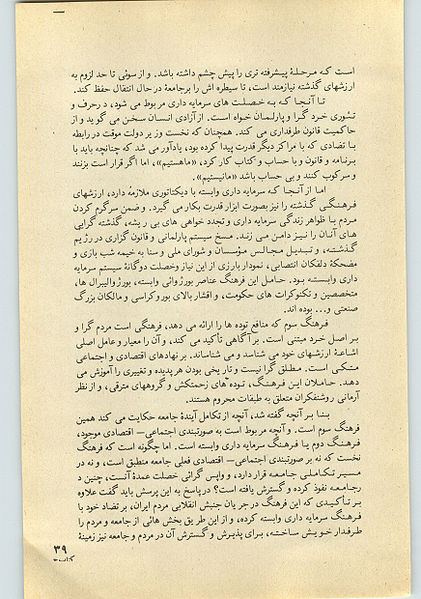 است که مرحلهٔ پیشرفته تری را پیش چشم داشته باشد. و از سوئی تا حد لزوم به
ارزشهای گذشته نیازمند است، تا سیطره اش را برجامعهٔ در حال انتقال حفظ کند.
تا آنجا که به خصلت های سرمایه داری مربوط می شود، در حرف و
تئوری خرد گرا و پارلمان خواه است. از آزادی انسان سخن می گوید و از
حاکمیت قانون طرفداری می کند. همچنان که نخست وزیر دولت موقت در رابطه
با تضادی که با مراکز دیگر قدرت پیدا کرده بود، یادآور می شد که چنانچه باید با
برنامه و قانون و با حساب و کتاب کار کرد، «ماهستیم»، اما اگر قرار است بزنند
و سرکوب کنند و بی حساب باشد «مانیستیم».
اما از آنجا که سرمایه داری وابسته با دیکتاتوری ملازمه دارد، ارزشهای
فرهنگی گذشته را نیز بصورت ابزار قدرت بکار می گیرد. و ضمن سرگرم کردن
مردم با ظواهر زندگی سرمایه داری و تجدد خواهی های بی ریشه، گذشته گرایی
های آنان را نیز دامن می زند. مسخ سیستم پارلمانی و قانون گزاری در رژیم
گذشته، و تبدیل مجالس مؤسسان و شورای ملی و سنا به خیمه شب بازی و
مضحکهٔ دلقکان انتصابی، نمودار بارزی از این نیاز وخصلت دوگانهٔ سیستم سرمایه
داری وابسته بود. حامل این فرهنگ عناصر بورژوائی وابسته، بورژوالیبرال ها،
متخصصین و تکنوکرات های حکومت، و اقشار بالای بوروکراسی و مالکان بزرگ
صنعتی و... بوده اند.
فرهنگ سوم که منافع توده ها را ارائه می دهد، فرهنگی است مردم گرا و
بر اصل خرد مبتنی است. بر آگاهی تأکید می کند، و آن را معیار و عامل اصلی
اشاعهٔ ارزشهای خود می شناسد و می شناساند. بر نهادهای اقتصادی و اجتماعی
متکی است. مطلق گرا نیست و تاریخی بودن هر پدیده و تغییری را آموزش می
دهد. حاملان این فرهنگ، توده های زحمتکش و گروههای مترقی، و از نظر
آرمانی روشنفکران متعلق به طبقات محروم هستند.
بنا بر آنچه گفته شد، آنچه از تکامل آیندهٔ جامعه حکایت می کند همین
فرهنگ سوم است. و آنچه مربوط است به صورتبندی اجتماعی – اقتصادی موجود،
فرهنگ دوم یا فرهنگ سرمایه داری وابسته است. اما چگونه است که فرهنگ
نخست که نه بر صورتبندی اجتماعی – اقتصادی فعلی جامعه منطبق است، و نه در
مسیر تکاملی جامعه قرار دارد، و واپس گرائی خصلت عمدهٔ آنست، چنین د
رجامعه نفوذ کرده و گسترش یافته است؟ در پاسخ به این پرسش باید گفت علاوه
بر تأکیدی که این فرهنگ در جریان جنبش انقلابی مردم ایران، بر تضاد خود با
فرهنگ سرمایه داری وابسته کرده، و از این طریق بخش هائی از جامعه و مردم را
طرفدار خویش ساخته، برای پذیرش و گسترش آن در مردم و جامعه نیز زمینهٔ
۳۹